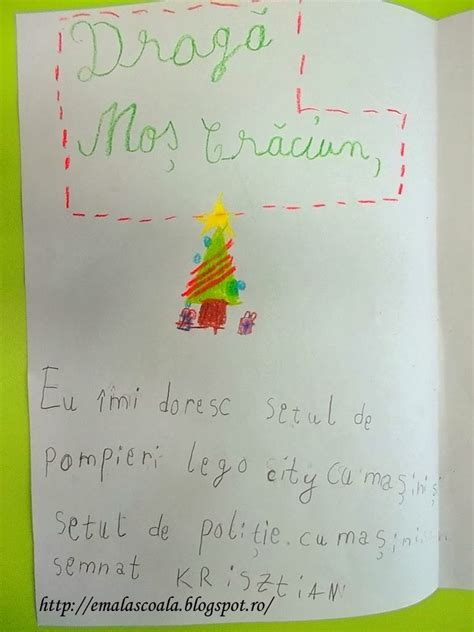 Dragă
Moș Crăciun,
Eu îmi doresc setul de
pompieri lego city cu mașini și
setul de poliție. cu mașini
semnat KRiSZTIAN
http://emalascoala.blogspot.ro/